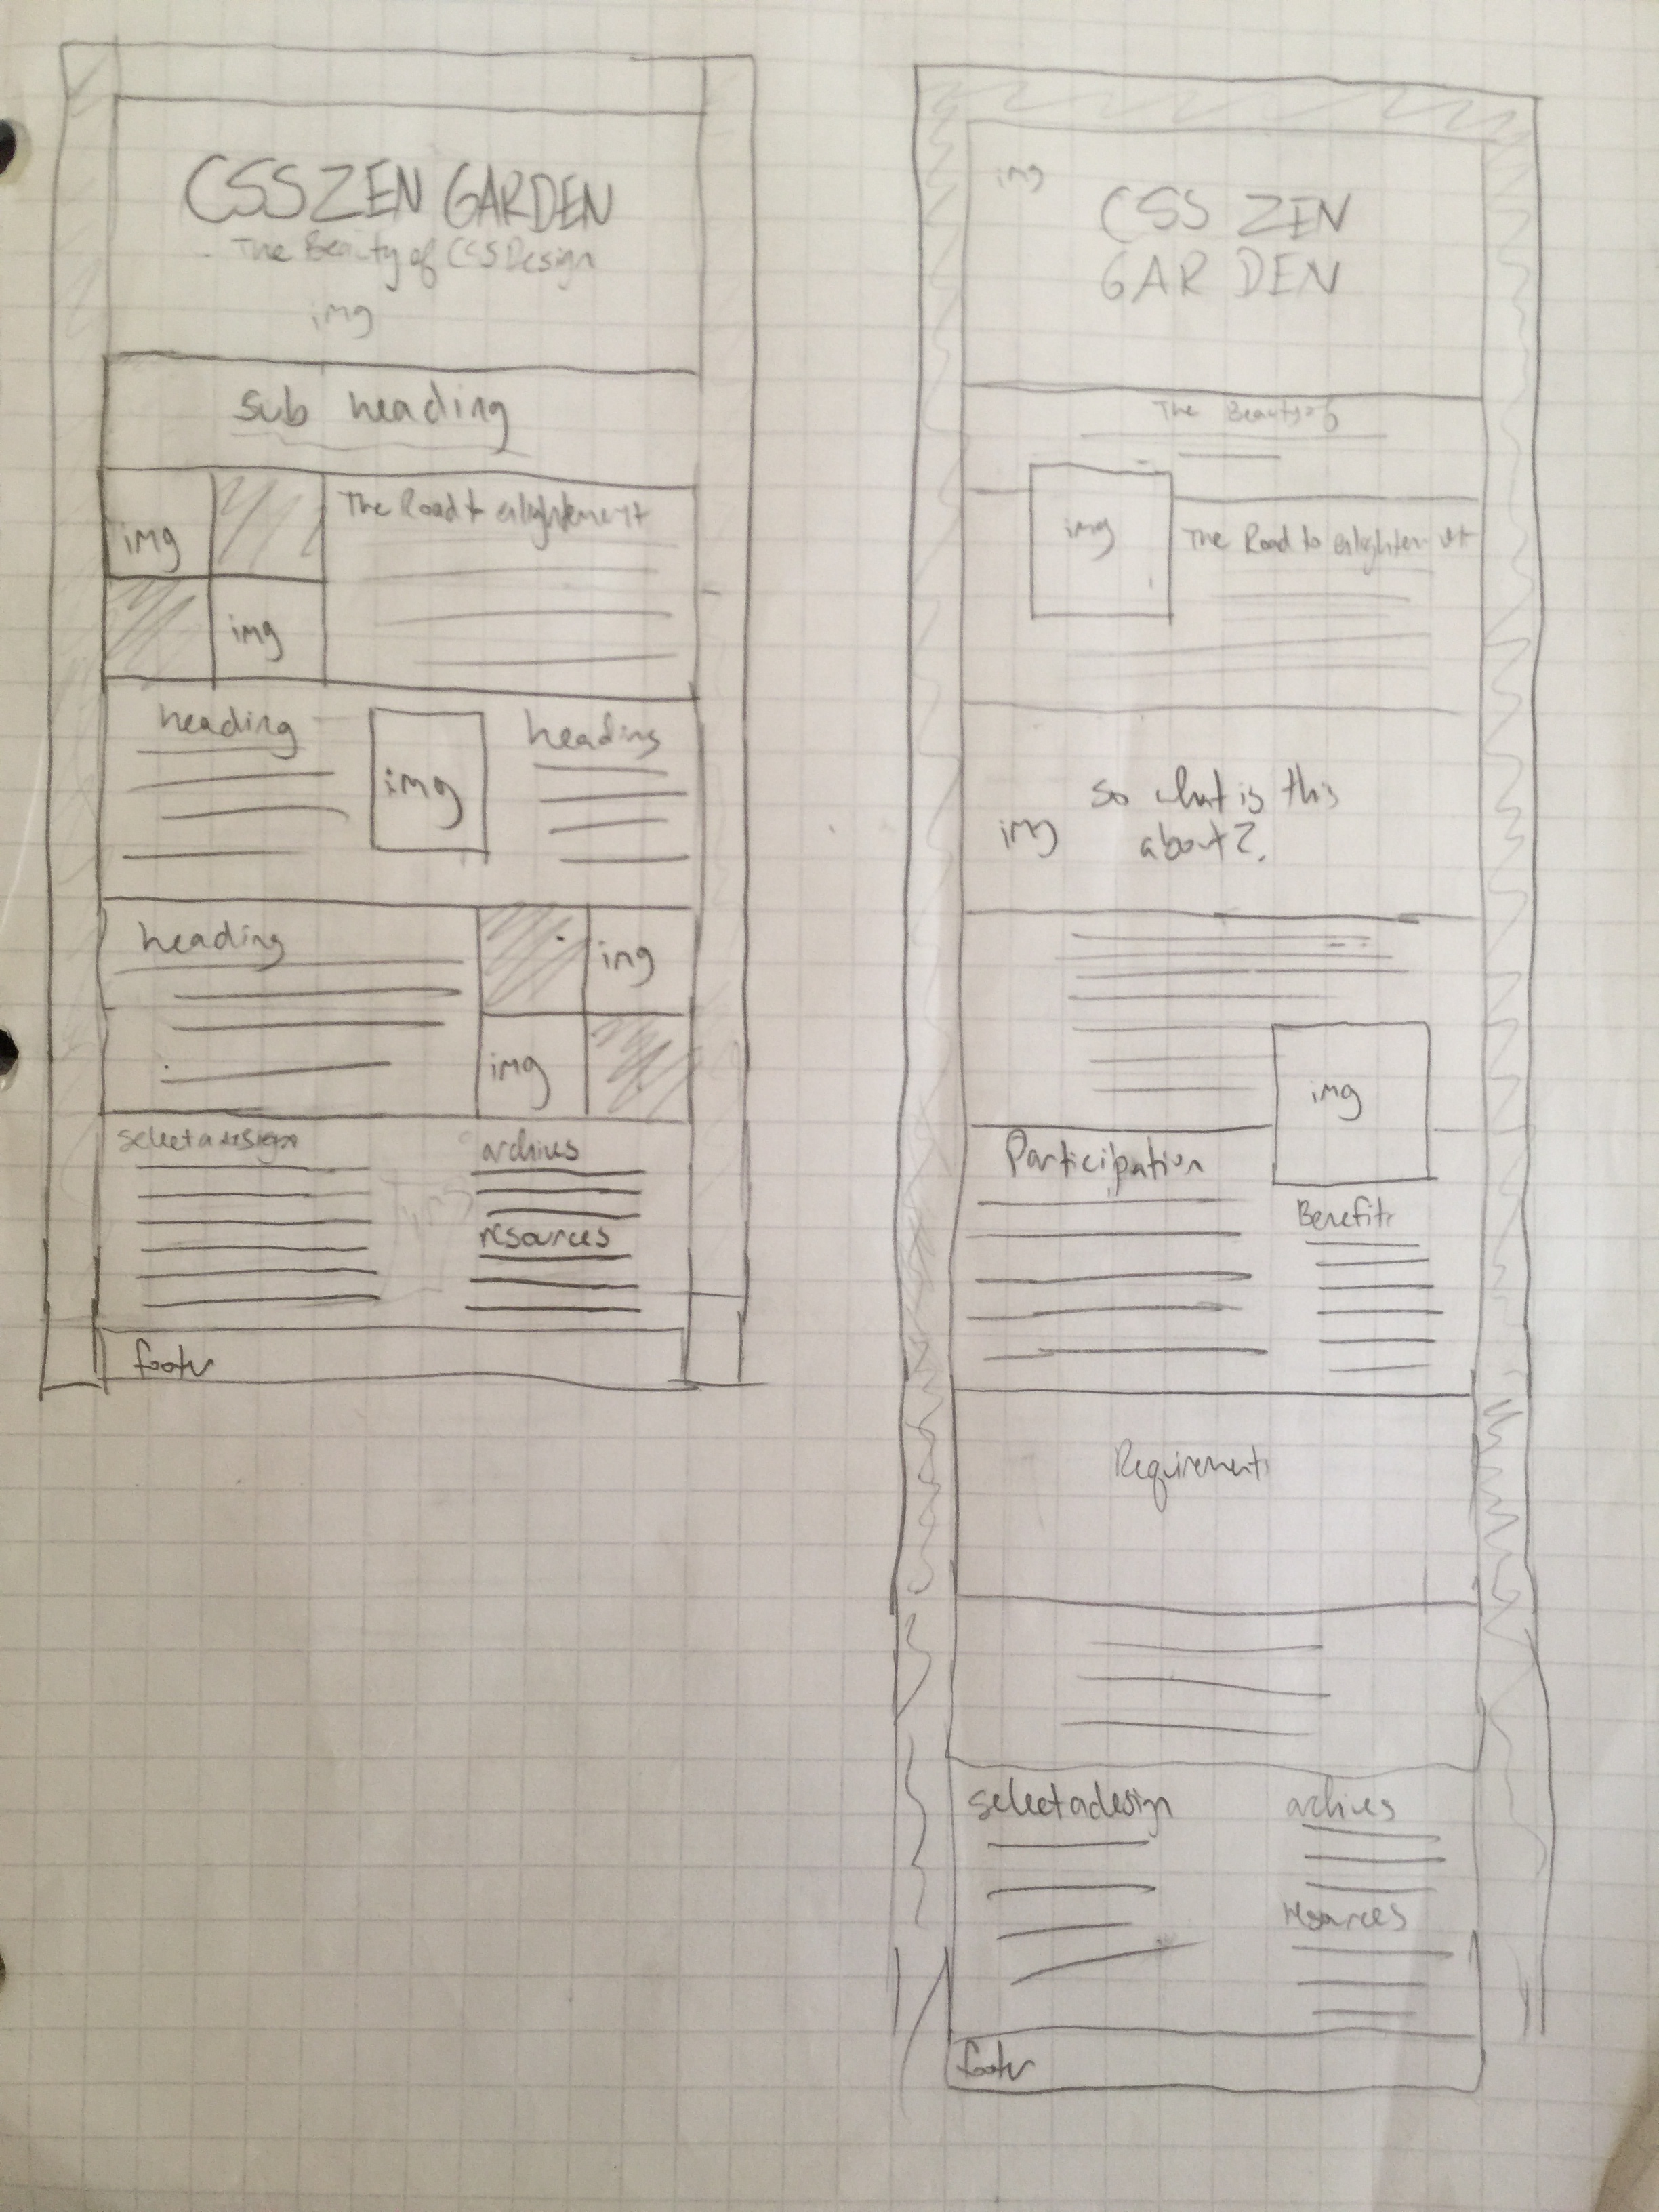 CSS ZEN GARDEN
The Beauty of CSS Design
img
sub heading
img
The Road to enlightenment
img
heading
img
heading
heading
img
img
select a design
archives
resources
footer
img
CSS ZEN
GARDEN
The Beauty of
img
The Road to enlightenment
so what is this
img
about?
img
Participation
Benefits
Requirements
select a design
archives
resources
footer